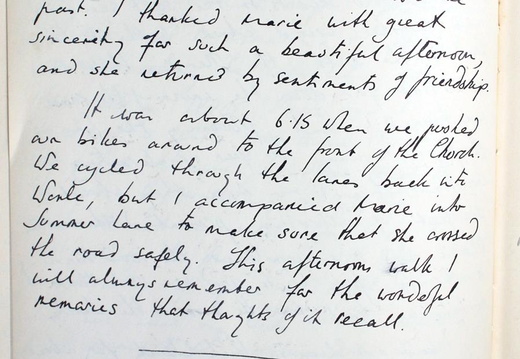 past. I thanked Marie with great
sincerity for such a beautiful afternoon,
and she returned by sentiments of friendship.
It was about 6.15 when we pushed
our bikes around to the front of the Church.
We cycled through the lanes back into
Worle, but I accompanied Marie into
Summer Lane to make sure that she crossed
the road safely. This afternoon walk I
will always remember for the wonderful
memories that thoughts of it recall.